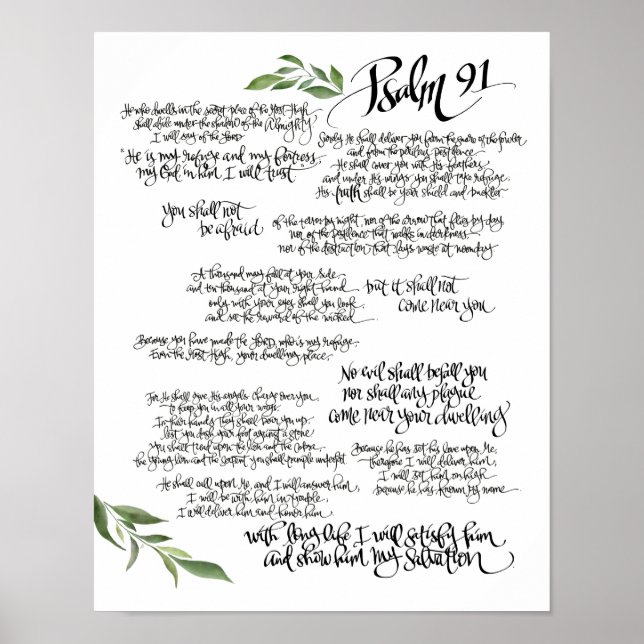 Psalm 91
He who dwells in the secret place of the Most High
shall abide under the shadow of the Almighty
I will say of the LORD
"He is my refuge and my fortress
my God in him I will trust"
Surely He shall deliver you from the snare of the fowler
and from the perilous pestilence
He shall cover you with His feathers
and under His wings you shall take refuge
His truth shall be your shield and buckler
you shall not
be afraid
of the terror by night, nor of the arrow that flies by day
nor of the pestilence that walks in darkness
nor of the destruction that lays waste at noonday
A thousand may fall at your side
and ten thousand at your right hand
but it shall not
come near you
only with your eyes shall you look
and see the reward of the wicked
Because you have made the LORD, who is my refuge
Even the Most High, your dwelling place
No evil shall befall you
nor shall any plague
come near your dwelling
For He shall give His angels charge over you
to keep you in all your ways
In their hands they shall bear you up
lest you dash your foot against a stone
You shall tread upon the lion and the cobra
the young lion and the serpent you shall trample underfoot
Because he has set his love upon Me,
therefore I will deliver him,
I will set him on high
because he has known My name
He shall call upon Me, and I will answer him
I will be with him in trouble,
I will deliver him and honor him
with long life I will satisfy him
and show him My salvation